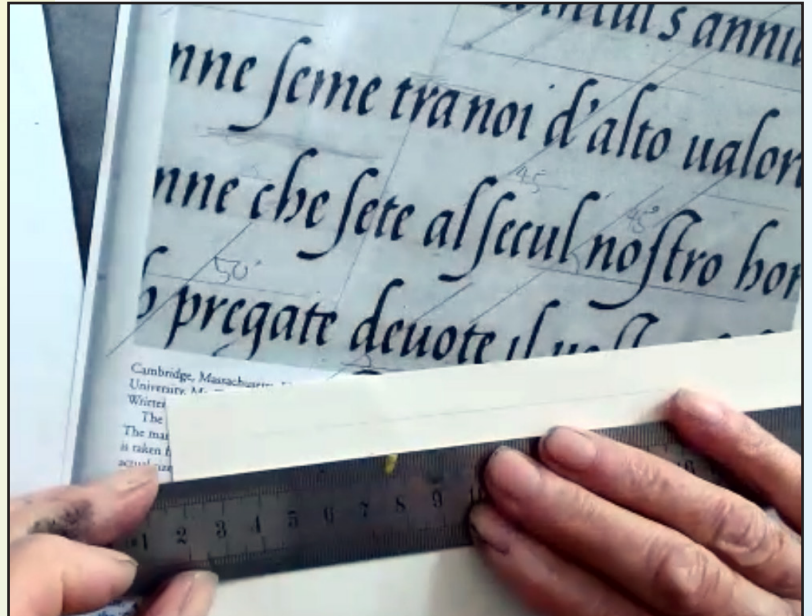 s annu
nne ſeme tra noi d'alto ualor
45
nne che ſete al ſecul noſtro hor
45°
50°
pregate deuote il
Cambridge, Massachusetts,
University,
Written
The
The
is taken
actual size
1 2 3 4 5 6 7 8 9 16